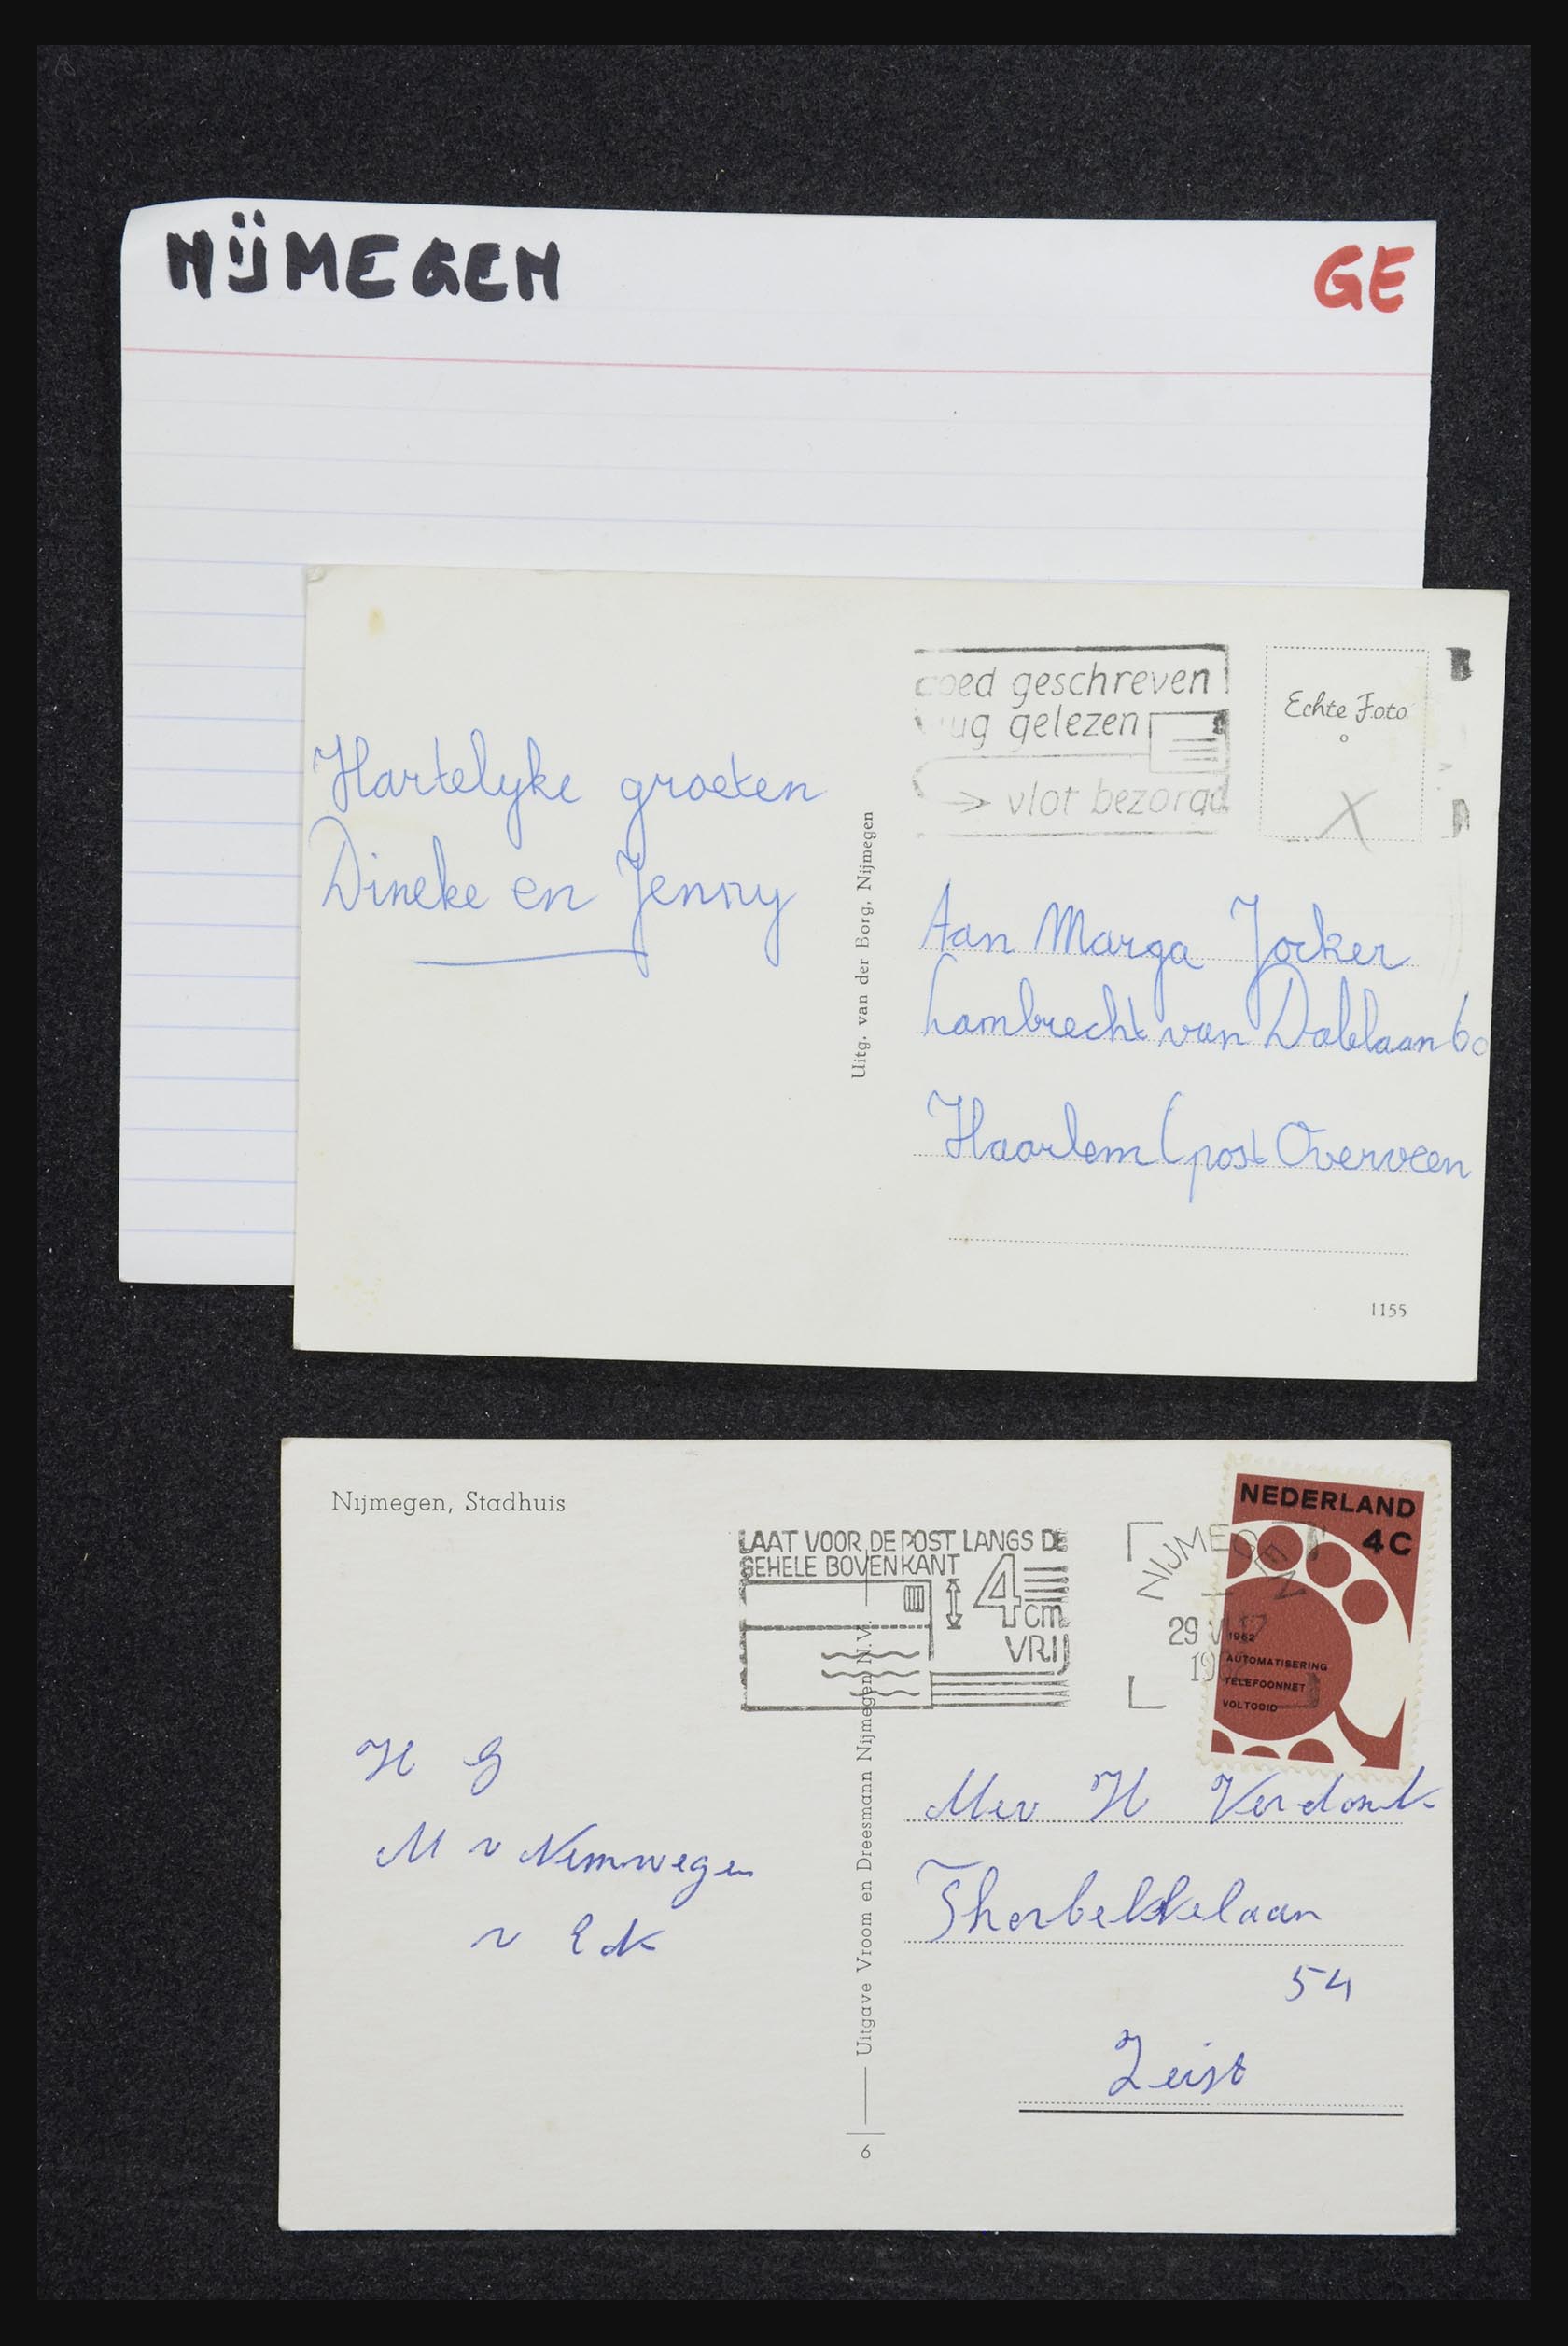 NIJMEGEN
GE
goed geschreven
gelezen
→ vlot bezorgd
Echte Foto
Hartelyke groeten
Dineke en Jenny
Uitg. van der Borg, Nijmegen
Aan Marga Jocker
Lambrecht van Dalelaan 60
Haarlem (post Overveen
1155
Nijmegen, Stadhuis
LAAT VOOR DE POST LANGS DE
GEHELE BOVENKANT
4 cm
VRIJ
NIJMEGEN
29 VI 17
1962
NEDERLAND
4C
1962
AUTOMATISERING
TELEFOONNET
VOLTOOID
H G
M v Nimwegen
v Eck
Uitgave Vroom en Dreesmann Nijmegen N.V.
6
Mev H Verdonk
Thorbekkelaan
54
Zeist